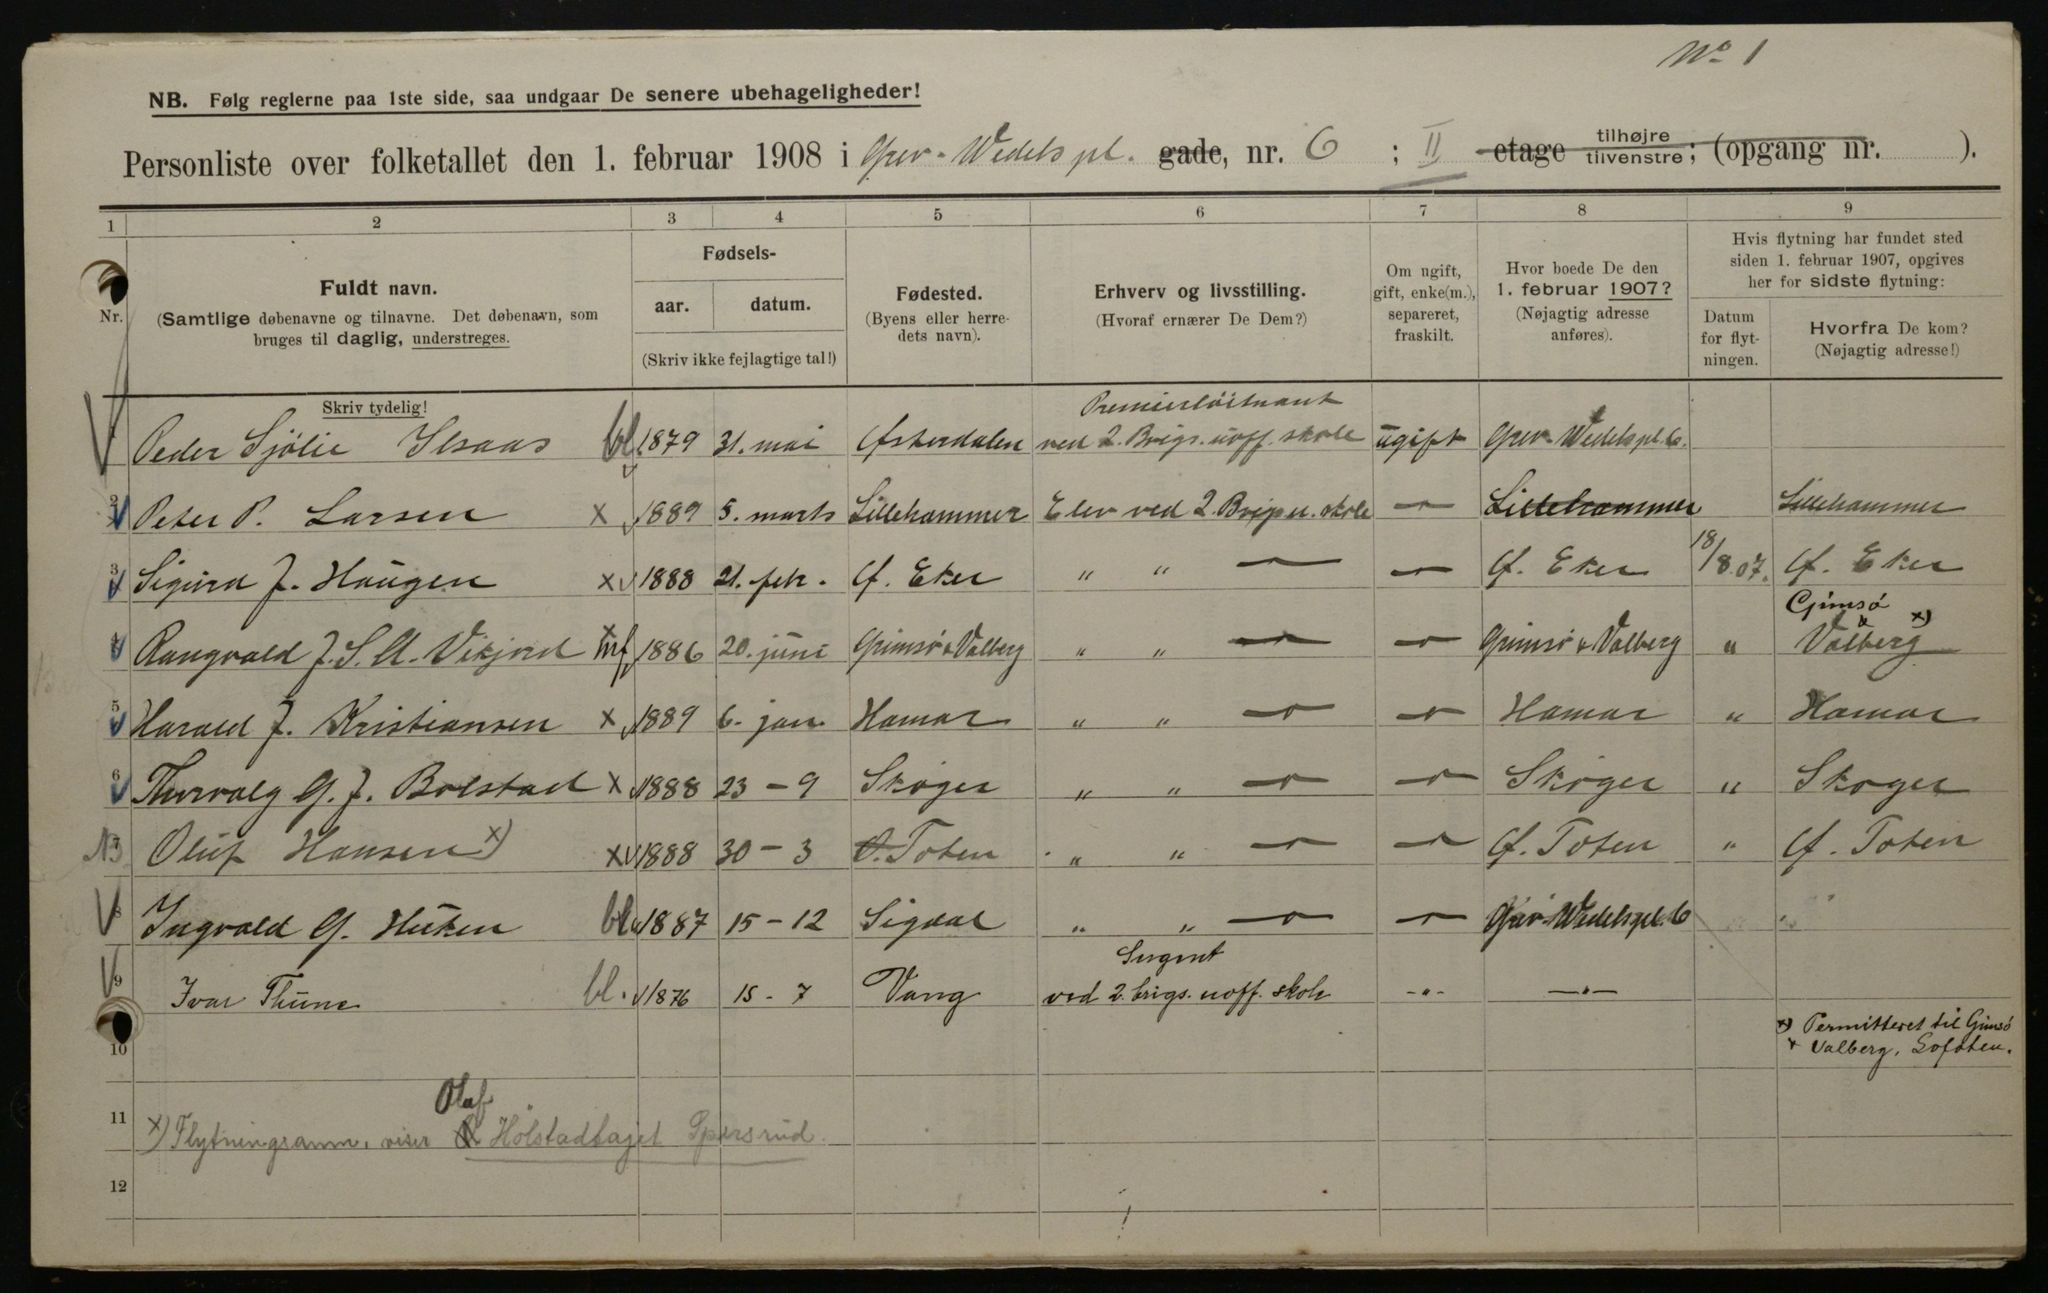 No 1
NB. Følg reglerne paa 1ste side, saa undgaar De senere ubehageligheder!
Personliste over folketallet den 1. februar 1908 i Grev-Wedels pl. gade, nr. 6 ; II etage tilhøjre tilvenstre; (opgang nr. ).
1 2 3 4 5 6 7 8 9
Nr.
Fuldt navn.
(Samtlige døbenavne og tilnavne. Det døbenavn, som
bruges til daglig, understreges.
Skriv tydelig!
Fødsels-
aar. datum.
(Skriv ikke fejlagtige tal!)
Fødested.
(Byens eller herre-
dets navn).
Erhverv og livsstilling.
(Hvoraf ernærer De Dem?)
Om ugift,
gift, enke(m.),
separeret,
fraskilt.
Hvor boede De den
1. februar 1907?
(Nøjagtig adresse
anføres).
Hvis flytning har fundet sted
siden 1. februar 1907, opgives
her for sidste flytning:
Datum
for flyt-
ningen.
Hvorfra De kom?
(Nøjagtig adresse!)
Premierløitnant
Peder Sjølie Ilsaas bl 1879 31. mai Østerdalen ved 2. Brigs. uoff. skole ugift Grev-Wedelspl. 6.
2 Peter P. Larsen x 1889 5. marts Lillehammer Elev ved 2. Brig. u. skole — Lillehammer Lillehammer
3 Sigurd J. Haugen x 1888 21. feb. Ø. Eker " " — — Ø. Eker 18/8.07. Ø. Eker
4 Rangvald J. S. A. Vikjord 1886 20. juni Gimsø & Valberg " " — — Gimsø & Valberg " Gimsø & Valberg x)
5 Harald J. Kristiansen x 1889 6. jan. Hamar " " — — Hamar " Hamar
6 Thorvalg G. J. Bolstad x 1888 23 – 9 Skoger " " — — Skoger " Skoger
7 Oluf Hansen x) x 1888 30 – 3 Ø. Toten " " — — Ø. Toten " Ø. Toten
8 Ingvald G. Huken bl 1887 15 – 12 Sigdal " " — — Grev-Wedelspl. 6
Sergent
9 Ivar Thune bl. 1876 15 - 7 Vang ved 2. brigs. uoff. skole -"- —"—
x) Permitteret til Gimsø
10 & Valberg, Lofoten.
Olaf
11 x) Flytningsanm. viser Holstadhajet Spersrud.
12